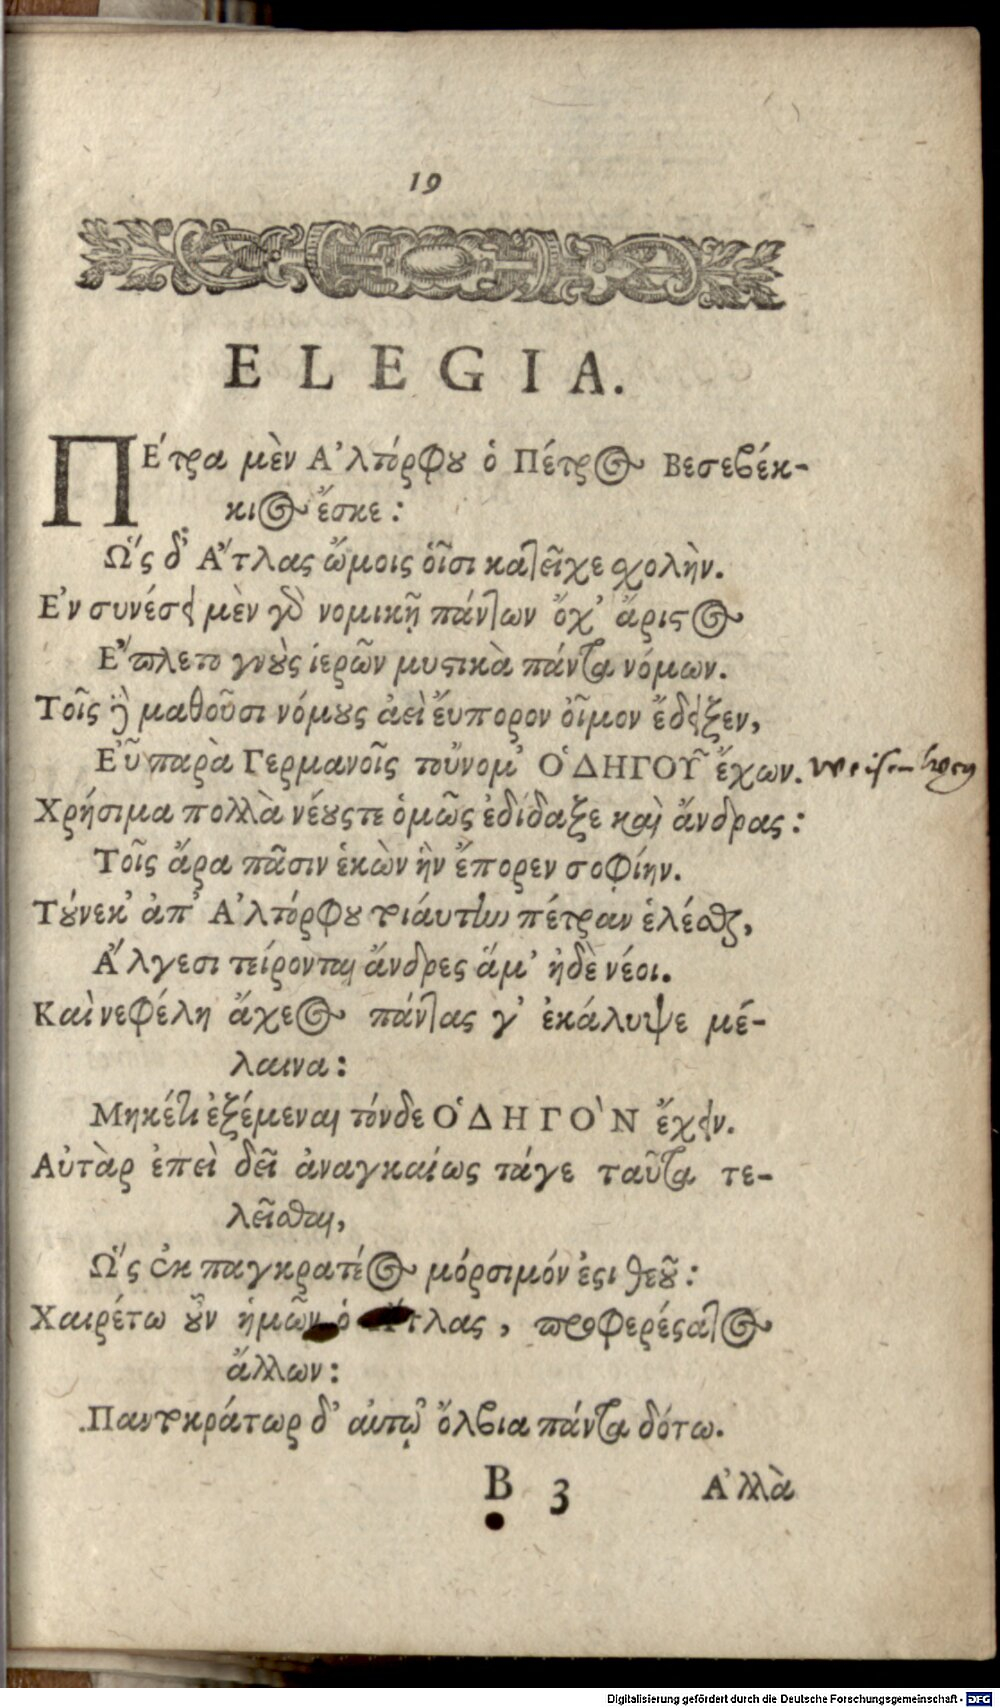 19
ELEGIA.
ΠΈτρα μὲν Ἀλτόρφου ὁ Πέτρος Βεσεβέκ-
κιος ἔσκε:
Ὥς δ' Ἄτλας ὤμοις οἷσι κατεῖχε σχολὴν.
Ἐν συνέσει μὲν γὰρ νομικῇ πάντων ὄχ' ἄριστος
Ἔπλετο γνοὺς ἱερῶν μυστικὰ πάντα νόμων.
Τοῖς δὲ μαθοῦσι νόμους ἀεὶ ἔυπορον οἶμον ἔδειξεν,
Εὖ παρὰ Γερμανοῖς τοὔνομ' ὉΔΗΓΟΥ͂ ἔχων.
Χρήσιμα πολλὰ νέους τε ὁμῶς ἐδίδαξε καὶ ἄνδρας:
Τοῖς ἄρα πᾶσιν ἑκὼν ἣν ἔπορεν σοφίην.
Τούνεκ' ἀπ' Ἀλτόρφου τοιάυτην πέτραν ἑλέσθαι,
Ἄλγεσι τείρονται ἄνδρες ἅμ' ἠδὲ νέοι.
Καὶ νεφέλη ἄχεος πάντας γ' ἐκάλυψε μέ-
λαινα:
Μηκέτι ἑξέμεναι τόνδε ὉΔΗΓῸΝ ἔχειν.
Αὐτὰρ ἐπεὶ δεῖ ἀναγκαίως τάγε ταῦτα τε-
λεῖσθαι,
Ὥς ἐκ παγκρατέος μόρσιμόν ἐστι θεοῦ:
Χαιρέτω οὖν ἡμῶν ὁ Ἄτλας, προφερέστατος
ἄλλων:
Παντοκράτωρ δ' αὐτῷ ὄλβια πάντα δότω.
B 3 Ἀλλὰ
Digitalisierung gefördert durch die Deutsche Forschungsgemeinschaft - DFG